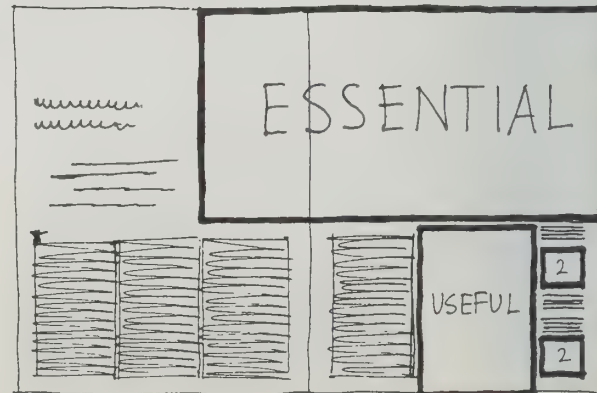 ESSENTIAL
2
USEFUL
2